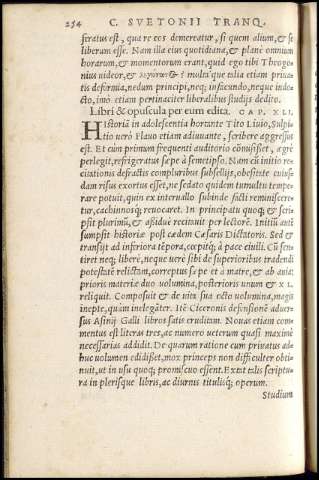 254 C. SVETONII TRANQ.
seratus est, qua re eos demereatur, si quem alium, & se
liberam esse. Nam illa eius quotidiana, & planè omnium
horarum, & momentorum erant, quid ego tibi Theogo-
nius uideor, & multa'que talia etiam priua-
tis deformia, nedum principi, neq; infacundo, neque indo-
cto, imò etiam pertinaciter liberalibus studijs dedito.
Libri & opuscula per eum edita. CAP. XLI.
HIstoriã in adolescentia hortante Tito Liuio, Sulpi-
tio uerò Flauo etiam adiuuante, scribere aggressus
est. Et cùm primum frequenti auditorio cõmisisset, ægrè
perlegit, refrigeratus sæpe à semetipso. Nam cũ initio re-
citationis defractis compluribus subsellijs, obesitate cuius-
dam risus exortus esset, ne sedato quidem tumultu tempe-
rare potuit, quin ex interuallo subinde facti reminiscere-
tur, cachinnosq; reuocaret. In principatu quoq; & scri-
psit plurimũ, & aßiduè recitauit per lectorẽ. Initiũ autẽ
sumpsit historiæ post cædem Cæsaris Dictatoris. Sed &
transijt ad inferiora tẽpora, cœpitq; à pace ciuili. Cũ sen-
tiret neq; liberè, neque uerè sibi de superioribus tradendi
potestatẽ relictam, correptus sæpe et à matre, & ab auia:
prioris materiæ duo uolumina, posterioris unum & XL.
reliquit. Composuit & de uita sua octo uolumina, magis
ineptè, quàm inelegãter. Itẽ Ciceronis defensionẽ aduer-
sus Asinij Galli libros satis eruditam. Nouas etiam com-
mentus est literas tres, ac numero ueterum quasi maximè
necessarias addidit. De quarum ratione cum priuatus ad-
huc uolumen edidisset, mox princeps non difficulter obti-
nuit, ut in usu quoq; promiscuo essent. Extat talis scriptu-
ra in plerisque libris, ac diurnis titulisq; operum.
Studium